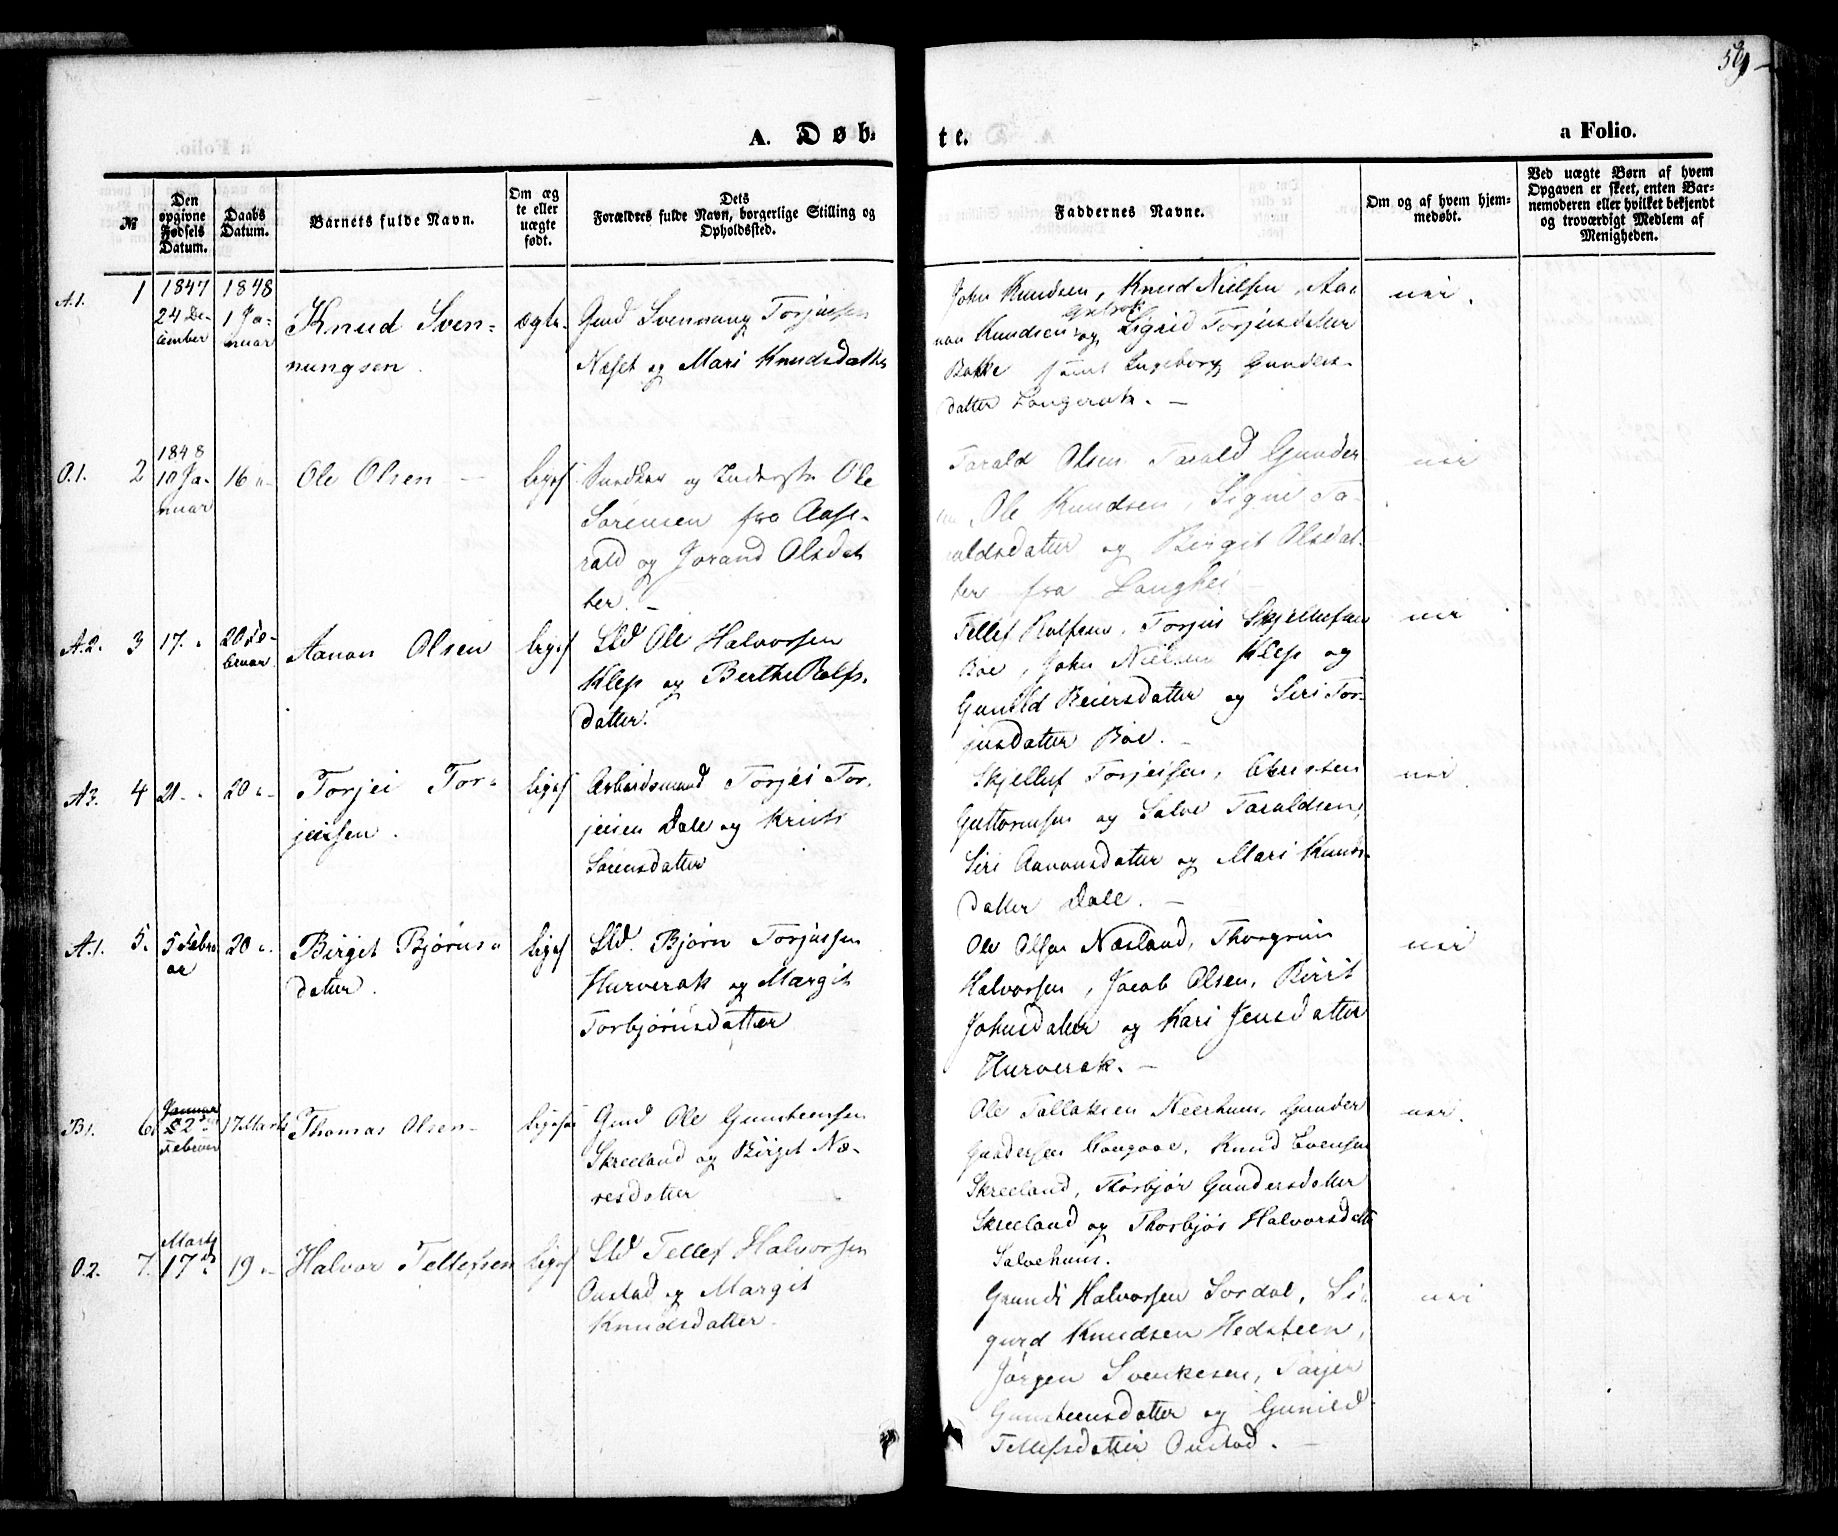 59
A. Døb-
te.
a Folio.
№
Den opgivne Fødsels Datum.
Daabs Datum.
Barnets fulde Navn.
Om ægte eller uægte født.
Dets Forældres fulde Navn, borgerlige Stilling og Opholdssted.
Faddernes Navne.
Om og af hvem hjemmedøbt.
Ved uægte Børn af hvem Opgaven er skeet, enten Barnemoderen eller hvilket bekjendt og troværdigt Medlem af Menigheden.
A.1. 1
1847 24 December
1848 1 Januar
Knud Svennungsen.
ægte.
Gmd Svennung Torjussen
Næset og Mari Knudsdatter
John Knudsen, Knud Nielsen, Aa-
non Knudsen og Sigrid Torjusdatter
Bakke samt Ingeborg Gunders-
datter Langerak. —
nei.
O.1. 2
1848 10 Januar
16 "
Ole Olsen —
ligesaa
og Inderste Ole
Sørensen fra Aase-
rald og Jorand Olsdat-
ter. —
Tarald Olsen Tarald Gunder
Ole Knudsen, Signe Ta-
raldsdatter og Birgit Olsdat-
ter fra Langhei —
nei
A.2. 3
17. "
20 Februar
Aanon Olsen
ligesaa
Sld Ole Halvorsen
Klep og Berthe Rolfs-
datter.
Tellef Rolfsen, Torjus Skjellefsen
Boe, John Nielsen Klep og
Gunild Beiersdatter og Siri Tor-
jusdatter Boe. —
nei
A3. 4
21. "
20 "
Torjei Tor-
jeisen.
ligesaa
Arbeidsmand Torjei Tor-
jeisen Dale og Kristi
Sørensdatter
Skjellef Torjeisen, Christen
Guttormsen og Salve Taraldsen,
Siri Aanonsdatter og Mari Knuds-
datter Dale. —
nei
A.1. 5.
5 Februar
20 "
Birgit Bjørns-
datter.
ligesaa
Sld. Bjørn Torjussen
Hurverak og Margit
Torbjørnsdatter
Ole Olsen Næsland, Thorgrim
Halvorsen, Jacob Olsen, Birit
Johnsdatter og Kari Jensdatter
Hurverak. —
nei
B1. 6
Januar 22 Februar
17 Marts
Thomas Olsen
ligesaa
Gmd Ole Gunsteensen
Skreeland og Birget Næ-
resdatter
Ole Tallaksen Neerhum, Gunder
Gundersen, Knud Evensen
Skreeland, Thorbjør Gundersdatter
Skreeland og Thorbjør Halvorsdatter
Salvehuus.
nei.
O.2. 7.
Marts 17de
19 "
Halvor Tellefsen
ligesaa
Sld Tellef Halvorsen
Oustad og Margit
Knudsdatter.
Gunder Halvorsen Sordal, Si-
gurd Knudsen Hedsteen,
Jørgen Svenkesen, Tarjer
Gunsteensdatter og Gunild
Tellefsdatter Oustad. —
nei